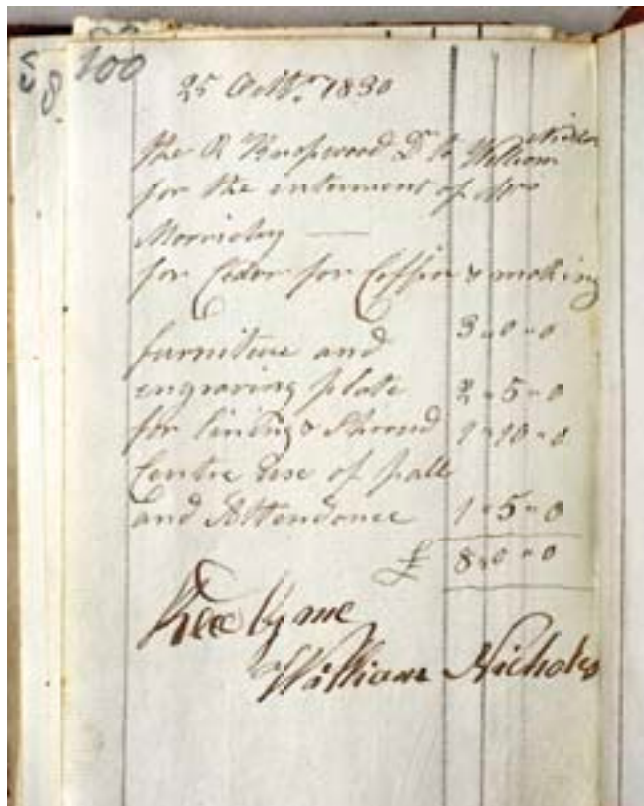 100
25 Octbr. 1830
the R Knopwood Dr to William Nichols
for the interment of Mrs
Morrisby —
for Cedar for Coffin & making
3 " 0 " 0
furniture and
engraving plate 2 " 5 " 0
for lining & Shroud 1 " 10 " 0
Centre use of pall
and Attendance 1 " 5 " 0
£ 8 " 0 " 0
Rec by me
William Nicholas